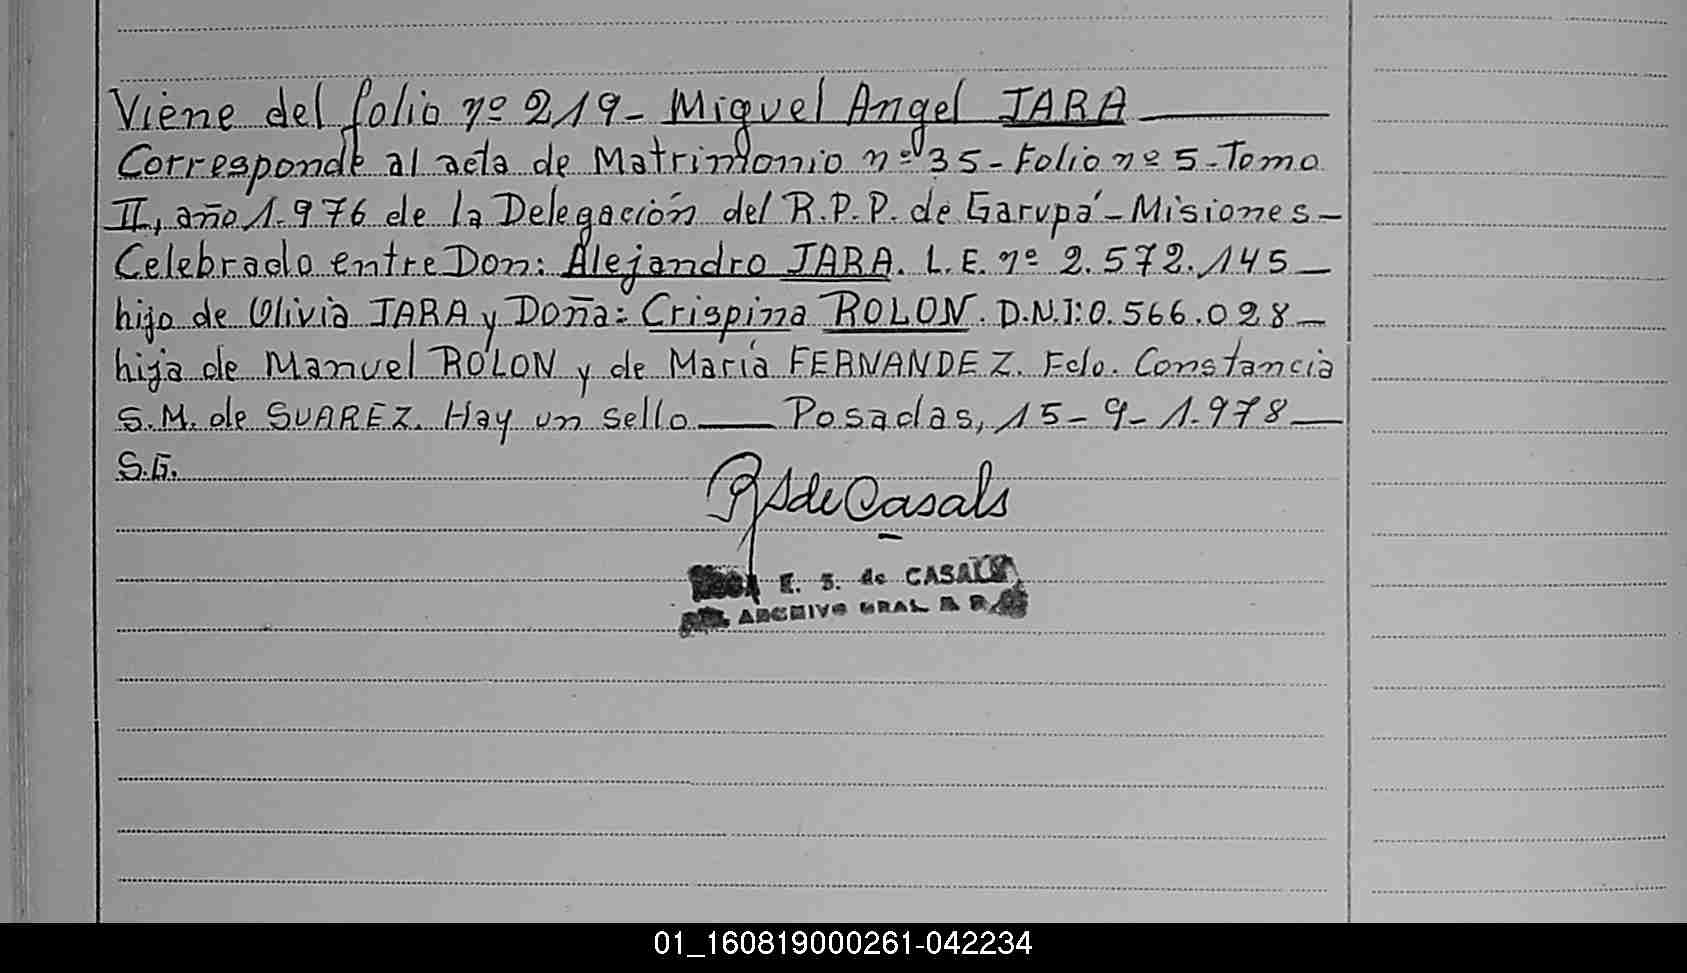 Viene del folio nº 219- Miguel Angel JARA
Corresponde al acta de Matrimonio nº 35- Folio nº 5- Tomo
II, año 1.976 de la Delegación del R.P.P. de Garupá- Misiones-
Celebrado entre Don: Alejandro JARA. L.E. nº 2.572.145-
hijo de Olivia JARA y Doña: Crispina ROLON. D.N.I: 0.566.028-
hija de Manuel ROLON y de María FERNANDEZ. Fdo. Constancia
S.M. de SUAREZ. Hay un sello — Posadas, 15-9-1.978—
S.G.
RSdeCasals
E. S. de CASALS
ARCHIVO GRAL R. P.
01_160819000261-042234